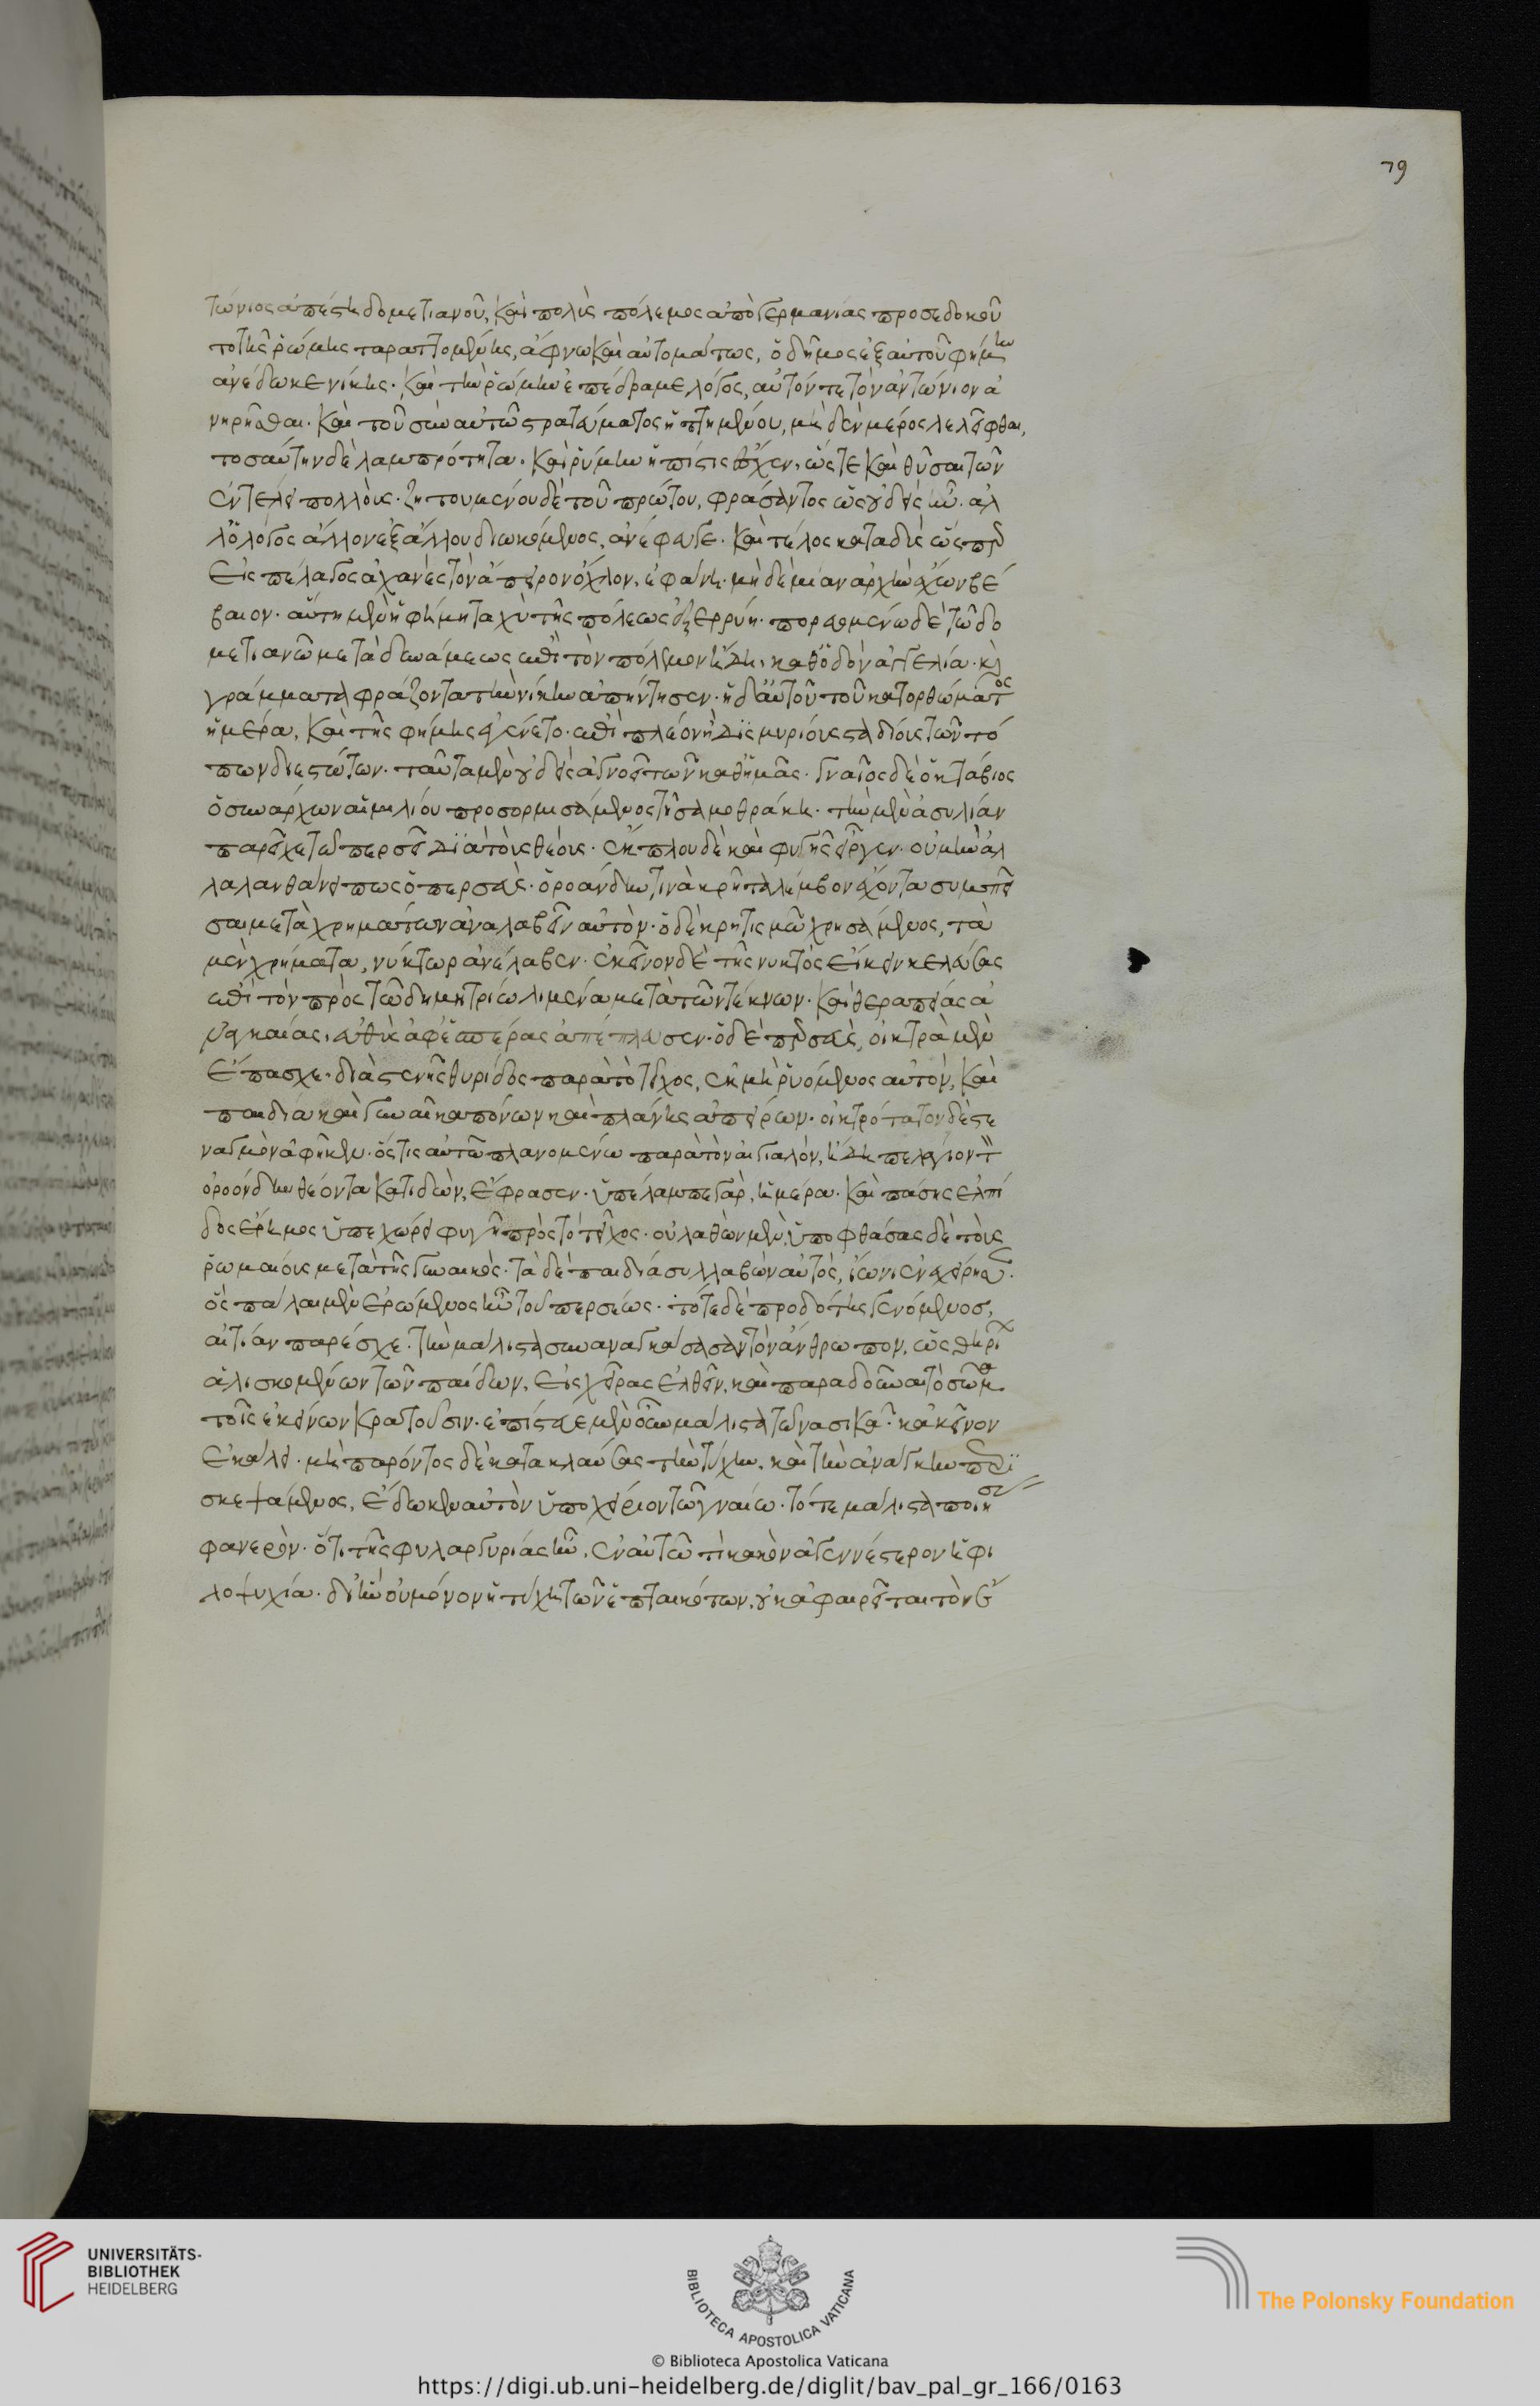 79
τώνιος ἀπέστη δομετιανοῦ, καὶ πολὺς πόλεμος ἀπὸ γερμανίας προσεδοκᾶ
το τῆς ῥώμης ταραττομένης, ἄφνω καὶ αὐτομάτως, ὁ δῆμος ἐξ αὑτοῦ φήμην
ἀνέδωκε νίκης. καὶ τὴν ῥώμην ἐπέδραμε λόγος, αὐτόν τε τὸν ἀντώνιον ἀ
νηρῆσθαι. καὶ τοῦ σὺν αὐτῶ στρατεύματος ἡττημένου, μηδὲν μέρος λελεῖφθαι,
τοσαύτην δὲ λαμπρότητα. καὶ ῥύμην ἡ πίστις ἔσχεν, ὥστε καὶ θῦσαι τῶν
ἐν τέλει πολλούς. ζητουμένου δὲ τοῦ πρώτου, φράσαντος ὡς οὐδεὶς ἦν. ἀλ
λ' ὁ λόγος ἄλλον ἐξ ἄλλου διωκόμενος, ἀνέφευγε. καὶ τέλος καταδὺς ὥσπερ
εἰς πέλαγος ἀχανὲς τὸν ἄπειρον ὄχλον, ἐφάνη. μηδεμίαν ἀρχὴν ἔχων βέ
βαιον. αὕτη μὲν ἡ φήμη ταχὺ τῆς πόλεως ἐξερρύη. πορευομένω δὲ τῶ δο
μετιανῶ μετὰ δυνάμεως ἐπὶ τὸν πόλεμον ἤδη, καθ' ὁδὸν ἀγγελία. καὶ
γράμματα φράζοντα τὴν νίκην ἀπήντησεν. ἡ δ' αὐτοῦ τοῦ κατορθώματος
ἡμέρα, καὶ τῆς φήμης ἐγένετο. ἐπὶ πλέον ἢ δισμυρίους σταδίους τῶν τό
πων διεστώτων. ταῦτα μὲν οὐδεὶς ἀγνοεῖ τῶν καθ' ἡμᾶς. γναῖος δὲ ὀκτάβιος
ὁ συνάρχων αἰμιλίου προσορμισάμενος τῆ σαμοθράκη. τὴν μὲν ἀσυλίαν
παρεῖχε τῶ περσεῖ διὰ τοὺς θεούς. ἔκπλου δὲ καὶ φυγῆς εἶργεν. οὐ μὴν ἀλ
λὰ λανθάνει πως ὁ περσεὺς. ὀροάνδην τινὰ κρῆτα λέμβον ἔχοντα συμπεῖ
σαι μετὰ χρημάτων ἀναλαβεῖν αὐτὸν. ὁ δὲ κρητισμῶ χρησάμενος, τὰ
μὲν χρήματα, νύκτωρ ἀνέλαβεν. ἐκεῖνον δὲ τῆς νυκτὸς εἵκειν κελεύσας
ἐπὶ τὸν πρὸς τῶ δημητρίω λιμένα μετὰ τῶν τέκνων. καὶ θεραπείας ἀ
ναγκαίας, εὐθὺς ἀφ' ἑσπέρας ἀπέπλευσεν. ὁ δὲ περσεὺς, οἰκτρὰ μὲν
ἔπασχε. διὰ στενῆς θυρίδος παρὰ τὸ τεῖχος, ἐκμηρυόμενος αὑτὸν, καὶ
παιδία καὶ γυναῖκα πόνων καὶ πλάνης ἀπείρων. οἰκτρότατον δὲ στε
ναγμὸν ἀφῆκεν. ὥς τις αὐτῶ πλανομένω παρὰ τὸν αἰγιαλὸν, ἤδη πελάγιον τὸν
ὀροάνδην θέοντα κατιδὼν, ἔφρασεν. ὑπέλαμπε γὰρ, ἡμέρα. καὶ πάσης ἐλπί
δος ἔρημος ὑπεχώρει φυγῆ πρὸς τὸ τεῖχος. οὐ λαθὼν μὲν, ὑποφθάσας δὲ τοὺς
ῥωμαίους μετὰ τῆς γυναικός. τὰ δὲ παιδία συλλαβὼν αὐτὸς, ἴων ἐνεχείρισεν.
ὃς πάλαι μὲν ἐρώμενος ἦν τοῦ περσέως. τότε δὲ προδότης γενόμενος,
αἰτίαν παρέσχε. τὴν μάλιστα συναναγκάσασαν τὸν ἄνθρωπον, ὡς θηρίον
ἁλισκομένων τῶν παίδων, εἰς χεῖρας ἐλθεῖν. καὶ παραδοῦναι τὸ σῶμα
τοῖς ἐκείνων κρατοῦσιν. ἐπίστευε μὲν οὖν μάλιστα τῶ νασικᾶ. κἀκεῖνον
ἐκάλει. μὴ παρόντος δὲ κατακλαύσας τὴν τύχην. καὶ τὴν ἀνάγκην περι
σκεψάμενος, ἔδωκεν αὑτὸν ὑποχείριον τῶ γναίω. τότε μάλιστα ποιήσας
φανερὸν. ὅτι τῆς φυλαργυρίας ἦν, ἐν αὐτῶ τὶ κακὸν ἀγεννέστερον ἡ φι
λοψυχία. δι' ἣν ὃ μόνον ἡ τύχη τῶν ἐπταικότων, οὐκ ἀφαιρεῖται τὸν ἔ
UNIVERSITÄTS-
BIBLIOTHEK
HEIDELBERG
BIBLIOTECA APOSTOLICA VATICANA
The Polonsky Foundation
© Biblioteca Apostolica Vaticana
https://digi.ub.uni-heidelberg.de/diglit/bav_pal_gr_166/0163